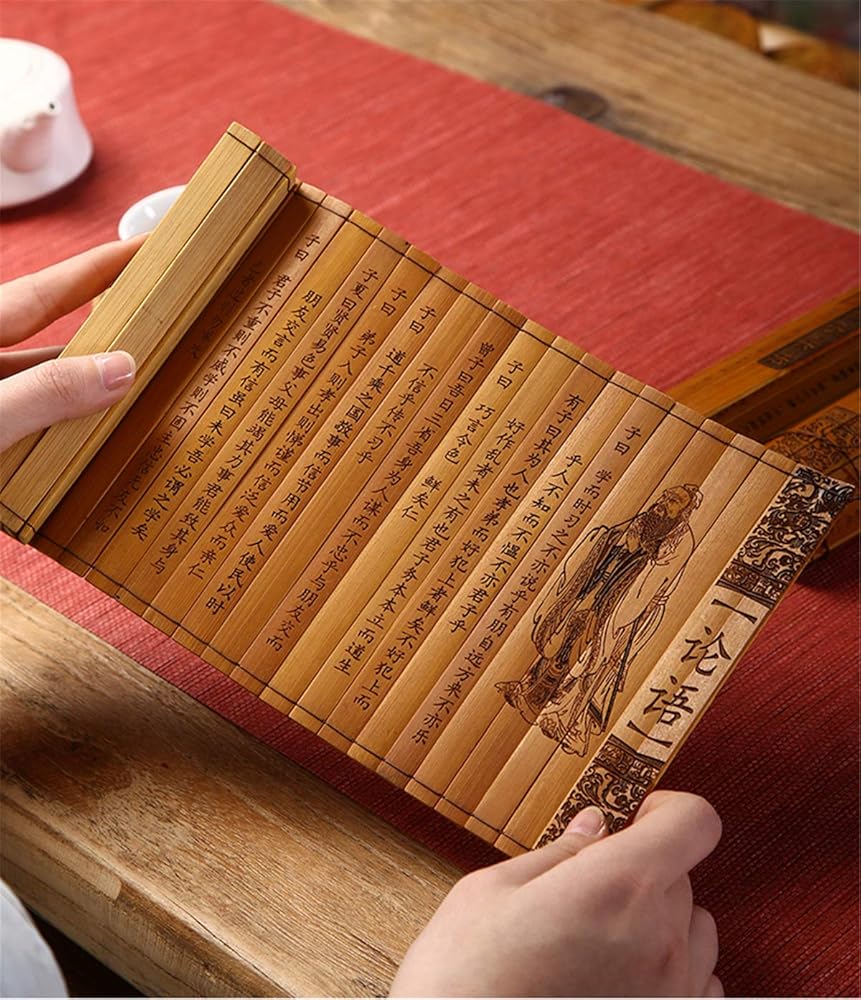 【论语】
子曰 学而时习之不亦说乎有朋自远方来不亦乐
乎人不知而不愠不亦君子乎
有子曰其为人也孝弟而好犯上者鲜矣不好犯上而
好作乱者未之有也君子务本本立而道生
子曰 巧言令色 鲜矣仁
曾子曰吾日三省吾身为人谋而不忠乎与朋友交而
不信乎传不习乎
子曰 道千乘之国敬事而信节用而爱人使民以时
子曰 弟子入則孝出則悌谨而信泛爱众而亲仁
子夏曰贤贤易色事父母能竭其力事君能致其身与
朋友交言而有信虽曰未学吾必谓之学矣
子曰 君子不重則不威学則不固主忠信无友不如